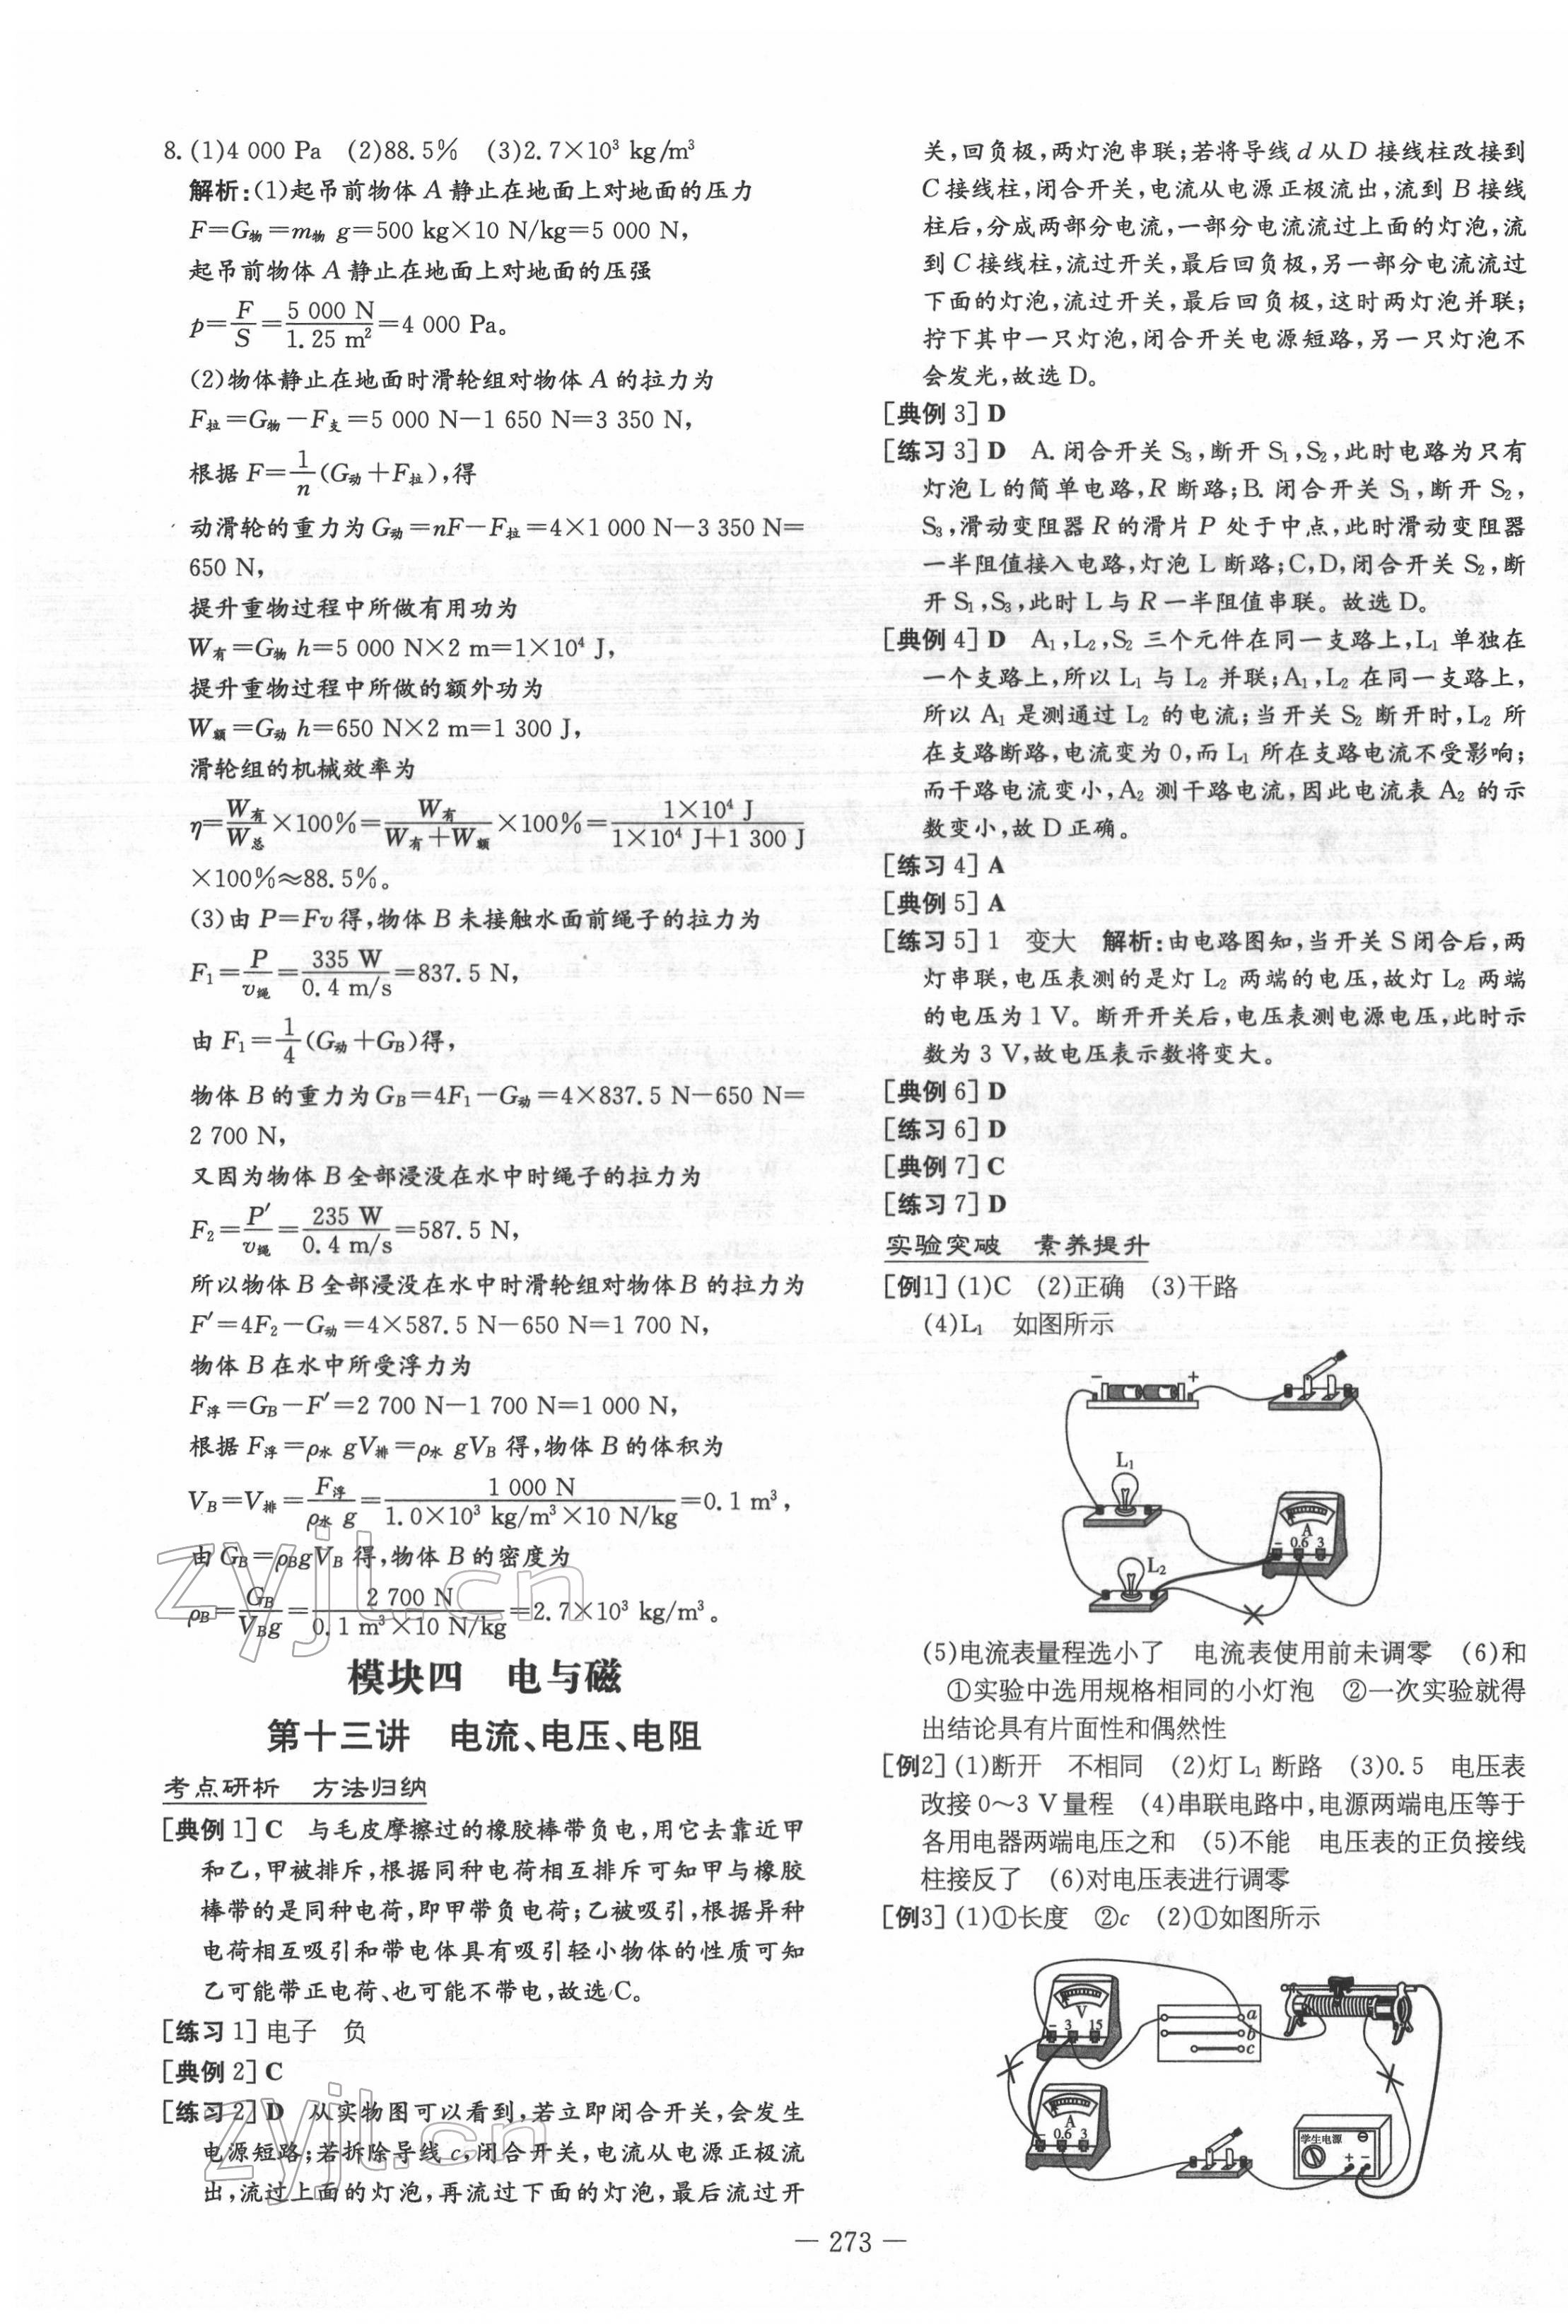 8. (1)4 000 Pa (2)88.5% (3)2.7×10³ kg/m³
解析:(1)起吊前物体 A 静止在地面上对地面的压力
F=G物=m物 g=500 kg×10 N/kg=5 000 N,
起吊前物体 A 静止在地面上对地面的压强
p=F/S=5 000 N/1.25 m²=4 000 Pa。
(2)物体静止在地面时滑轮组对物体 A 的拉力为
F拉=G物-F支=5 000 N-1 650 N=3 350 N,
根据 F=1/n(G动+F拉),得
动滑轮的重力为 G动=nF-F拉=4×1 000 N-3 350 N=
650 N,
提升重物过程中所做有用功为
W有=G物 h=5 000 N×2 m=1×10⁴ J,
提升重物过程中所做的额外功为
W额=G动 h=650 N×2 m=1 300 J,
滑轮组的机械效率为
η=W有/W总×100%=W有/(W有+W额)×100%=1×10⁴ J/(1×10⁴ J+1 300 J)
×100%≈88.5%。
(3)由 P=Fv得,物体 B 未接触水面前绳子的拉力为
F₁=P/v绳=335 W/0.4 m/s=837.5 N,
由 F₁=1/4(G动+GB)得,
物体 B 的重力为 GB=4F₁-G动=4×837.5 N-650 N=
2 700 N,
又因为物体 B 全部浸没在水中时绳子的拉力为
F₂=P′/v绳=235 W/0.4 m/s=587.5 N,
所以物体 B 全部浸没在水中时滑轮组对物体B 的拉力为
F′=4F₂-G动=4×587.5 N-650 N=1 700 N,
物体 B 在水中所受浮力为
F浮=GB-F′=2 700 N-1 700 N=1 000 N,
根据 F浮=ρ水 gV排=ρ水 gVB 得,物体 B 的体积为
VB=V排=F浮/ρ水 g=1 000 N/1.0×10³ kg/m³×10 N/kg=0.1 m³,
由 GB=ρBgVB 得,物体 B 的密度为
ρB=GB/VBg=2 700 N/0.1 m³×10 N/kg=2.7×10³ kg/m³。
模块四 电与磁
第十三讲 电流、电压、电阻
考点研析 方法归纳
[典例 1] C 与毛皮摩擦过的橡胶棒带负电,用它去靠近甲
和乙,甲被排斥,根据同种电荷相互排斥可知甲与橡胶
棒带的是同种电荷,即甲带负电荷;乙被吸引,根据异种
电荷相互吸引和带电体具有吸引轻小物体的性质可知
乙可能带正电荷、也可能不带电,故选C。
[练习 1] 电子 负
[典例 2] C
[练习 2] D 从实物图可以看到,若立即闭合开关,会发生
电源短路;若拆除导线 c,闭合开关,电流从电源正极流
出,流过上面的灯泡,再流过下面的灯泡,最后流过开
关,回负极,两灯泡串联;若将导线 d 从 D 接线柱改接到
C 接线柱,闭合开关,电流从电源正极流出,流到 B 接线
柱后,分成两部分电流,一部分电流流过上面的灯泡,流
到 C 接线柱,流过开关,最后回负极,另一部分电流流过
下面的灯泡,流过开关,最后回负极,这时两灯泡并联;
拧下其中一只灯泡,闭合开关电源短路,另一只灯泡不
会发光,故选 D。
[典例 3] D
[练习 3] D A. 闭合开关 S₃,断开 S₁,S₂,此时电路为只有
灯泡 L 的简单电路,R 断路;B. 闭合开关 S₁,断开 S₂,
S₃,滑动变阻器 R 的滑片 P 处于中点,此时滑动变阻器
一半阻值接入电路,灯泡 L 断路;C,D,闭合开关 S₂,断
开 S₁,S₃,此时 L 与 R 一半阻值串联。故选 D。
[典例 4] D A₁,L₂,S₂ 三个元件在同一支路上,L₁ 单独在
一个支路上,所以 L₁ 与 L₂ 并联;A₁,L₂ 在同一支路上,
所以 A₁ 是测通过 L₂ 的电流;当开关 S₂ 断开时,L₂ 所
在支路断路,电流变为 0,而 L₁ 所在支路电流不受影响;
而干路电流变小,A₂ 测干路电流,因此电流表 A₂ 的示
数变小,故 D 正确。
[练习 4] A
[典例 5] A
[练习 5] 1 变大 解析:由电路图知,当开关 S 闭合后,两
灯串联,电压表测的是灯 L₂ 两端的电压,故灯 L₂ 两端
的电压为 1 V。断开开关后,电压表测电源电压,此时示
数为 3 V,故电压表示数将变大。
[典例 6] D
[练习 6] D
[典例 7] C
[练习 7] D
实验突破 素养提升
[例1] (1)C (2)正确 (3)干路
(4)L₁ 如图所示
- +
L₁
A
- 0.6 3
L₂
(5)电流表量程选小了 电流表使用前未调零 (6)和
①实验中选用规格相同的小灯泡 ②一次实验就得
出结论具有片面性和偶然性
[例2] (1)断开 不相同 (2)灯 L₁ 断路 (3)0.5 电压表
改接 0~3 V 量程 (4)串联电路中,电源两端电压等于
各用电器两端电压之和 (5)不能 电压表的正负接线
柱接反了 (6)对电压表进行调零
[例3] (1)①长度 ②c (2)①如图所示
V
- 3 15
a
b
c
A
- 0.6 3
学生电源
+ -
— 273 —
zyjl.cn
zyjl.cn